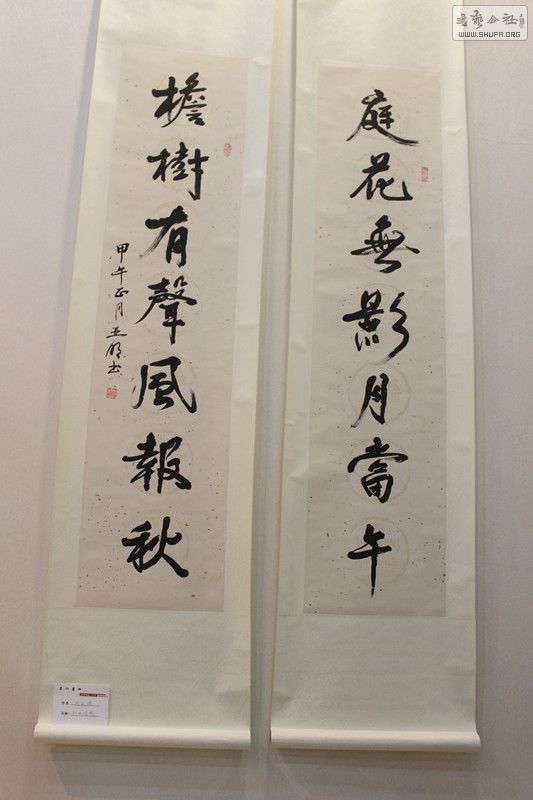 庭花無影月當午
檐樹有聲風報秋
甲午正月
書法公社
WWW.SHUFA.ORG